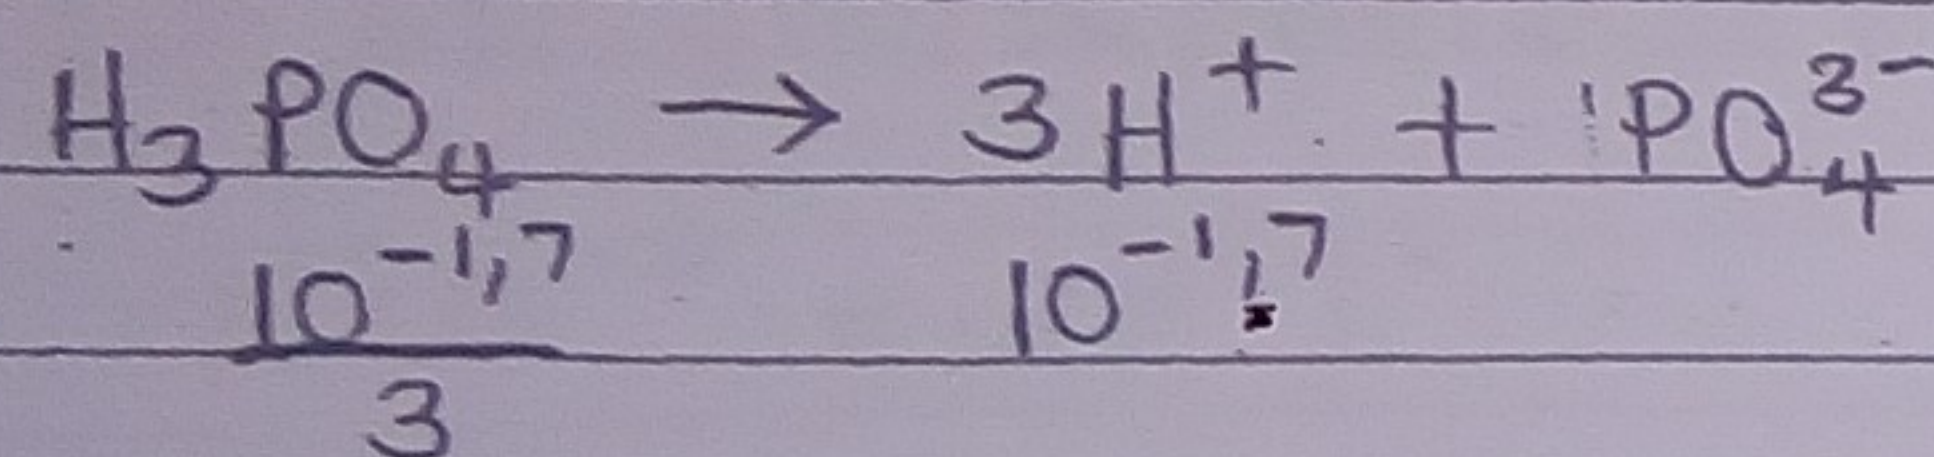 H₃PO₄ → 3H⁺ + PO₄³⁻
10⁻¹,⁷ 10⁻¹,⁷
3